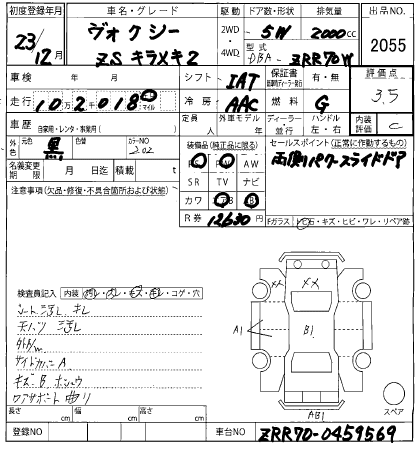 初度登録年月 車名・グレード 駆動 ドア数・形状 排気量 出品NO.
23/12月 ヴォクシー 2WD 5W 2000cc 2055
ZS キラメキ2 4WD 型式 DBA- ZRR70W
車検 年 月 シフト IAT 保証書 有・無 評価点
走行 10万2千018 マイル 冷房 AAC 燃料 G 3.5
車歴 自家用・レンタ・事業用( ) 定員 人 外車モデル 年 ディーラー・並行 ハンドル 左・右 内装評価 C
外色 元色 黒 色替 カラーNO 202 装備品(純正品に限る) セールスポイント(正常に作動するもの)
名義変更期限 月 日迄 積載 t PS PW AW 両側パワースライドドア
注意事項(欠品・修復・不具合箇所および状態) SR TV ナビ
カワ エアB B
R券 12630円 Fガラス トビ石・キズ・ヒビ・ワレ・リペア跡
検査員記入 内装 汚レ・スレ・キズ・キレ・コゲ・穴
シート汚レ キレ
天バリ 汚レ
外ト/m
サイドカバー A
キズ B
コアサポート 曲り
メメ
メメ
A1
B1
AB1
スペア
長さ cm 幅 cm 高さ cm
登録NO 車台NO ZRR70-0459569